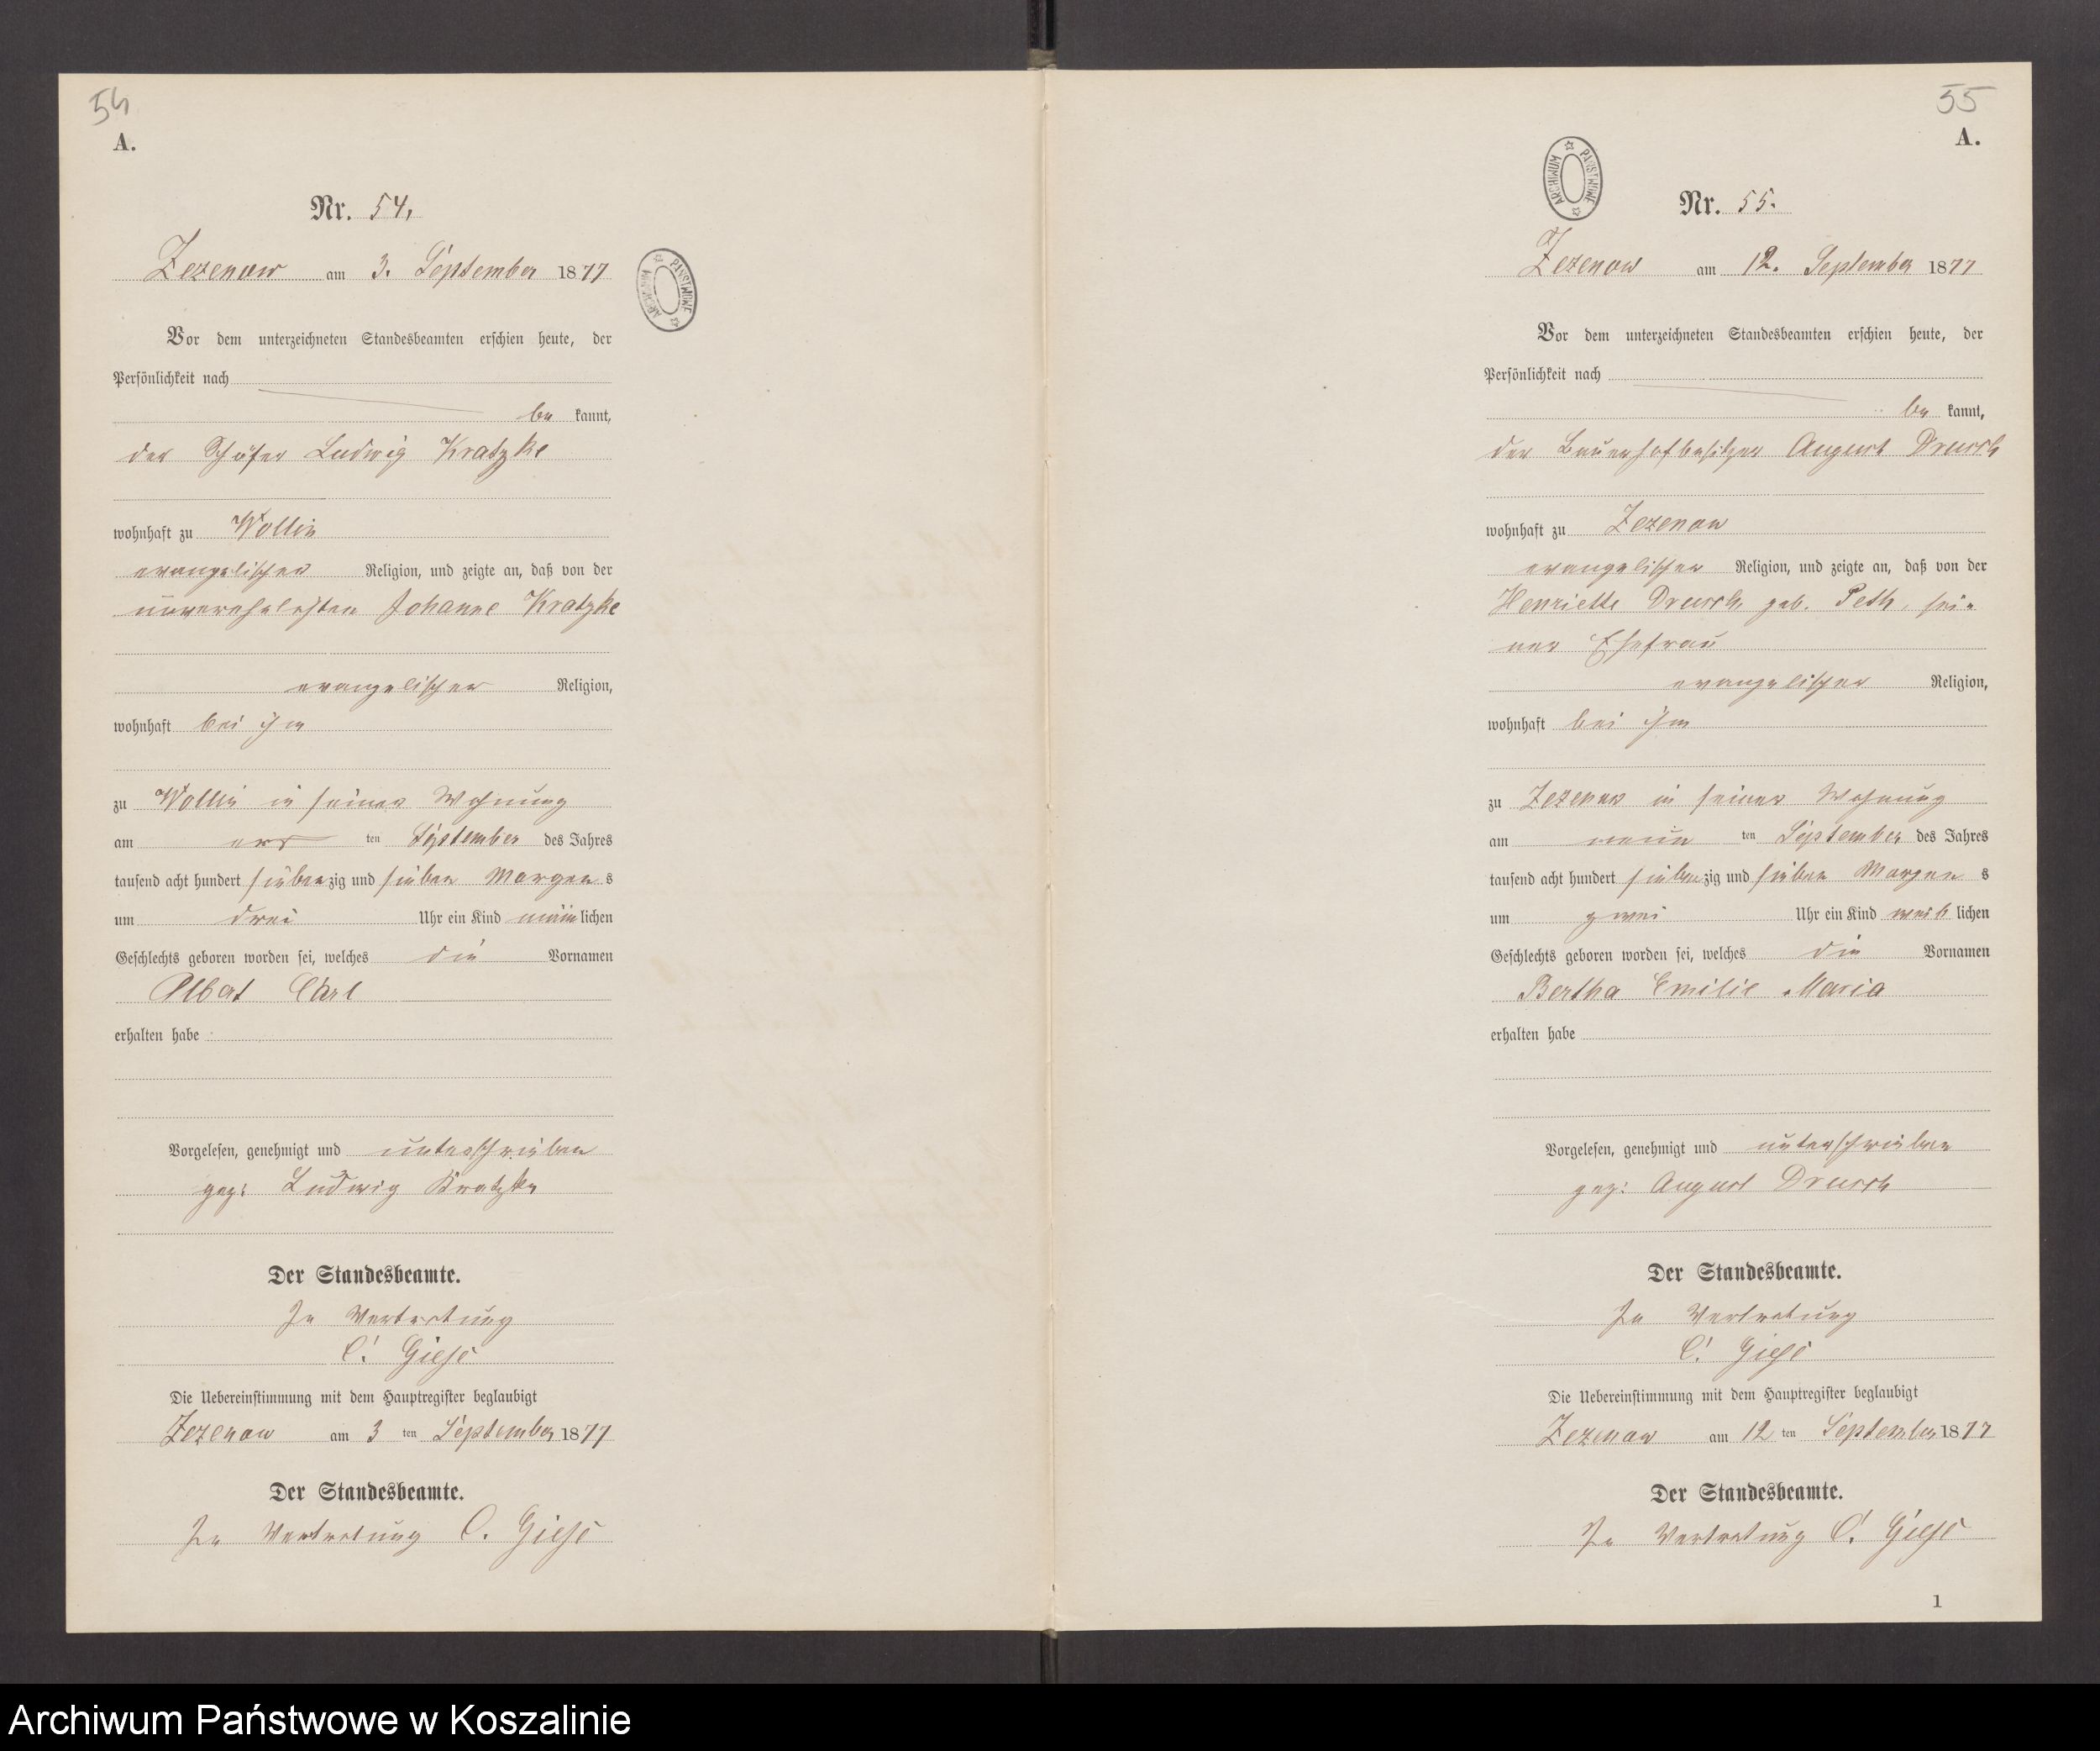 54
A.
Nr. 54.
Zezenow am 3. September 1877
Vor dem unterzeichneten Standesbeamten erschien heute, der
Persönlichkeit nach
be kannt,
der Schäfer Ludwig Kratzke
wohnhaft zu Wollin
evangelischer Religion, und zeigte an, daß von der
unverehelichten Johanne Kratzke
evangelischer Religion,
wohnhaft bei ihm
zu Wollin in seiner Wohnung
am ers ten September des Jahres
tausend acht hundert siebenzig und sieben Morgens
um drei Uhr ein Kind männlichen
Geschlechts geboren worden sei, welches die Vornamen
Albert Carl
erhalten habe
Vorgelesen, genehmigt und unterschrieben
gez: Ludwig Kratzke
Der Standesbeamte.
In Vertretung
C. Giese
Die Uebereinstimmung mit dem Hauptregister beglaubigt
Zezenow am 3 ten September 1877
Der Standesbeamte.
In Vertretung C. Giese
ARCHIWUM PAŃSTWOWE
55
A.
ARCHIWUM PAŃSTWOWE
Nr. 55.
Zezenow am 12. September 1877
Vor dem unterzeichneten Standesbeamten erschien heute, der
Persönlichkeit nach
be kannt,
der Bauerhofbesitzer August
wohnhaft zu Zezenow
evangelischer Religion, und zeigte an, daß von der
Henriette geb. Peth, sei-
ner Ehefrau
evangelischer Religion,
wohnhaft bei ihm
zu Zezenow in seiner Wohnung
am neun ten September des Jahres
tausend acht hundert siebenzig und sieben Morgens
um zwei Uhr ein Kind weiblichen
Geschlechts geboren worden sei, welches die Vornamen
Bertha Emilie Maria
erhalten habe
Vorgelesen, genehmigt und unterschrieben
gez: August
Der Standesbeamte.
In Vertretung
C. Giese
Die Uebereinstimmung mit dem Hauptregister beglaubigt
Zezenow am 12 ten September 1877
Der Standesbeamte.
In Vertretung C. Giese
1
Archiwum Państwowe w Koszalinie